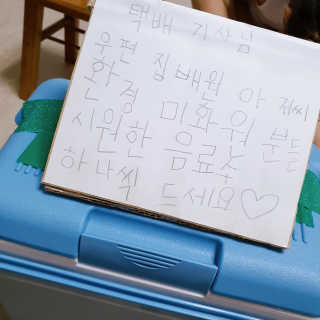 택배 기사님
우편 집배원 아저씨
환경 미화원 분들
시원한 음료수
하나씩 드세요♡